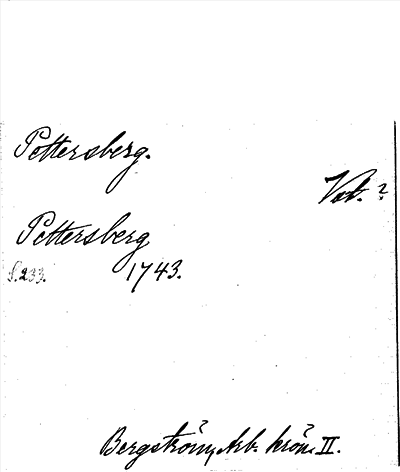 Pettersberg.
Vet. ?
Pettersberg
S. 233. 1743.
Bergström, Arb. krön. II.